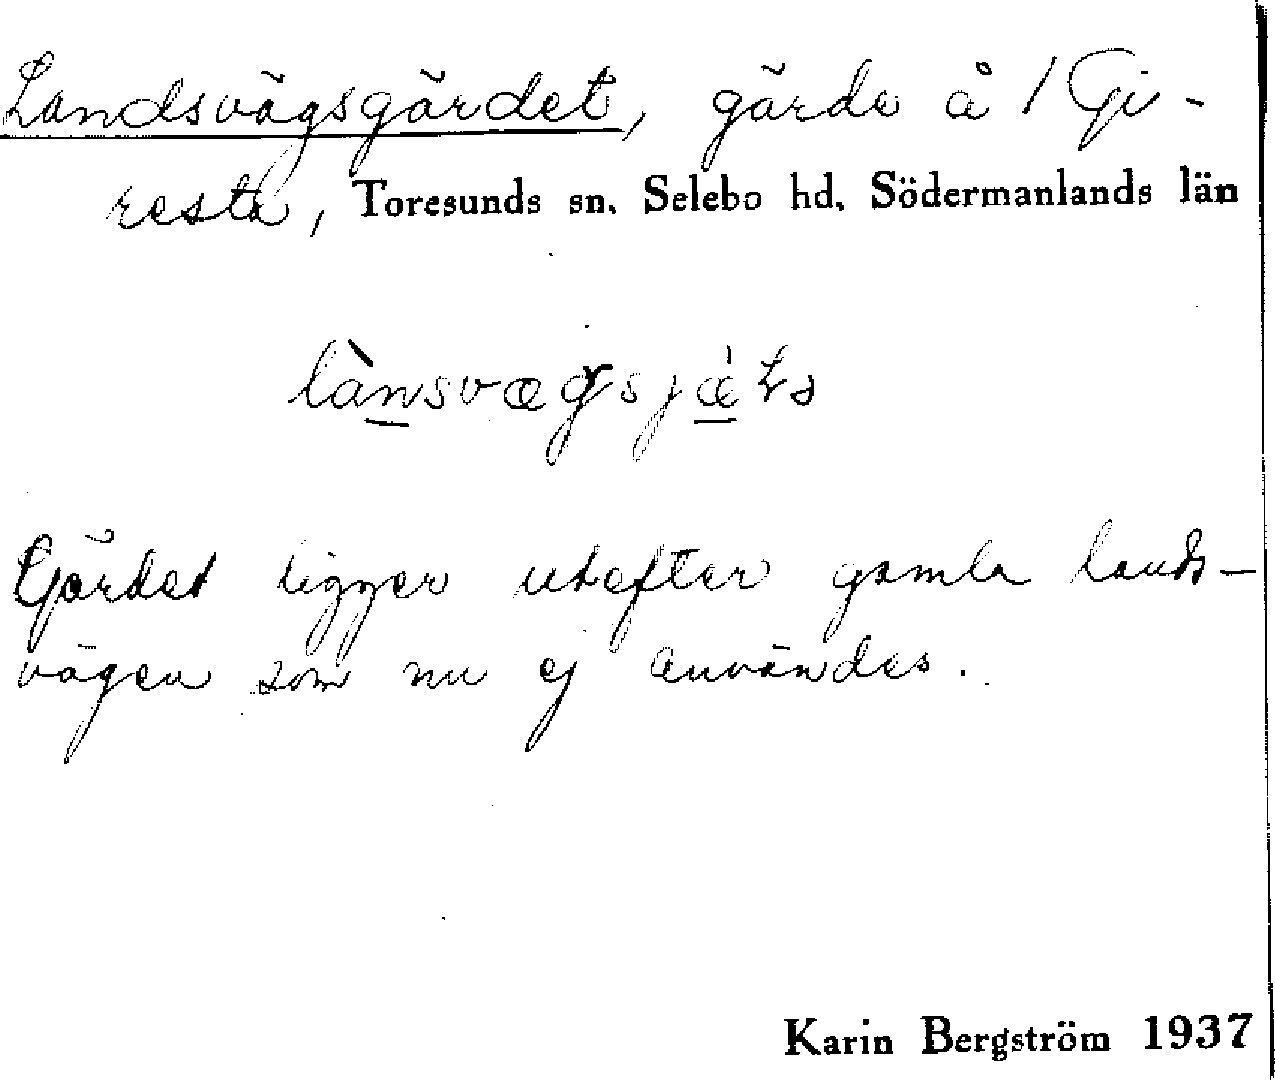 Landsvägsgärdet, gärde å 1 Gi-
resta, Toresunds sn. Selebo hd. Södermanlands län
Gärdet ligger utefter gamla lands-
vägen som nu ej användes.
Karin Bergström 1937